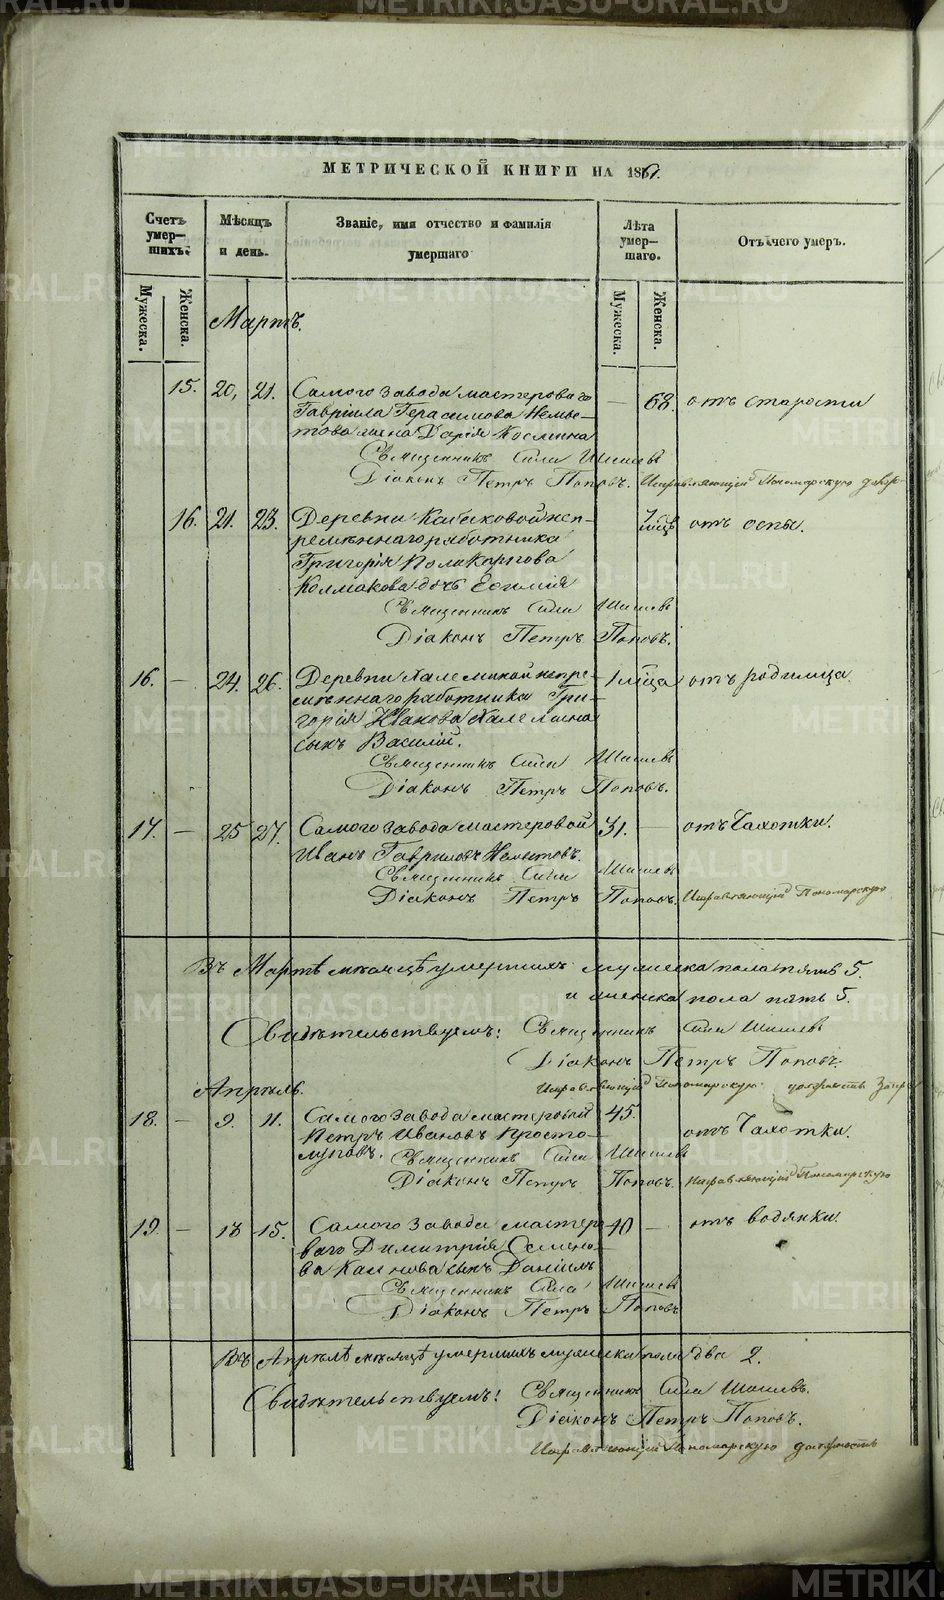 METRIKI.GASO-URAL.RU
МЕТРИЧЕСКОЙ КНИГИ НА 1861.
Счетъ умер- шихъ.
Мѣсяцъ и день.
Званіе, имя отчество и фамилія умершаго
Лѣта умер- шаго.
Отъ чего умеръ.
Мужеска.
Женска.
Мужеска.
Женска.
Мартъ.
15. 20. 21. Самого завода мастероваго — 68. отъ старости
Гавріила Герасимова
жена Дарія Космина
Священникъ Сила Шишевъ
Діаконъ Петръ Поповъ. Исправляющій Пономарскую
16. 21. 23. Деревни Кабаковой неп- 7 мцв отъ оспы.
ремѣннаго работника
Григорія Поликарпова
Колмакова дочь Евфимія
Священникъ Сила Шишевъ
Діаконъ Петръ Поповъ.
16. — 24. 26. Деревни непре- 1 мѣсца отъ родимца
мѣннаго работника Гри-
горія Иванова
сынъ Василій.
Священникъ Сила Шишевъ
Діаконъ Петръ Поповъ.
17. — 25 27. Самого завода мастеровой 31. — отъ Чахотки.
Иванъ Гавриловъ
Священникъ Сила Шишевъ
Діаконъ Петръ Поповъ. Исправляющій Пономарскую
Въ Мартѣ мѣсяцѣ умершихъ мужеска пола пять 5.
и женска пола пять 5.
Свидѣтельствуемъ: Священникъ Сила Шишевъ
Діаконъ Петръ Поповъ.
Исправляющій Пономарскую должность
Апрѣль.
18. — 9. 11. Самого завода мастеровой 45. отъ Чахотки.
Петръ Ивановъ Просто-
луповъ. Священникъ Сила Шишевъ
Діаконъ Петръ Поповъ. Исправляющій Пономарскую
19. — 13 15. Самого завода мастеро- 40 — отъ водянки.
ваго Димитрія Семено-
ва сынъ Даніилъ
Священникъ Сила Шишевъ
Діаконъ Петръ Поповъ
Въ Апрѣлѣ мѣсяцѣ умершихъ мужеска пола два 2.
Свидѣтельствуемъ: Священникъ Сила Шишевъ.
Діаконъ Петръ Поповъ.
Исправляющій Пономарскую должность
METRIKI.GASO-URAL.RU